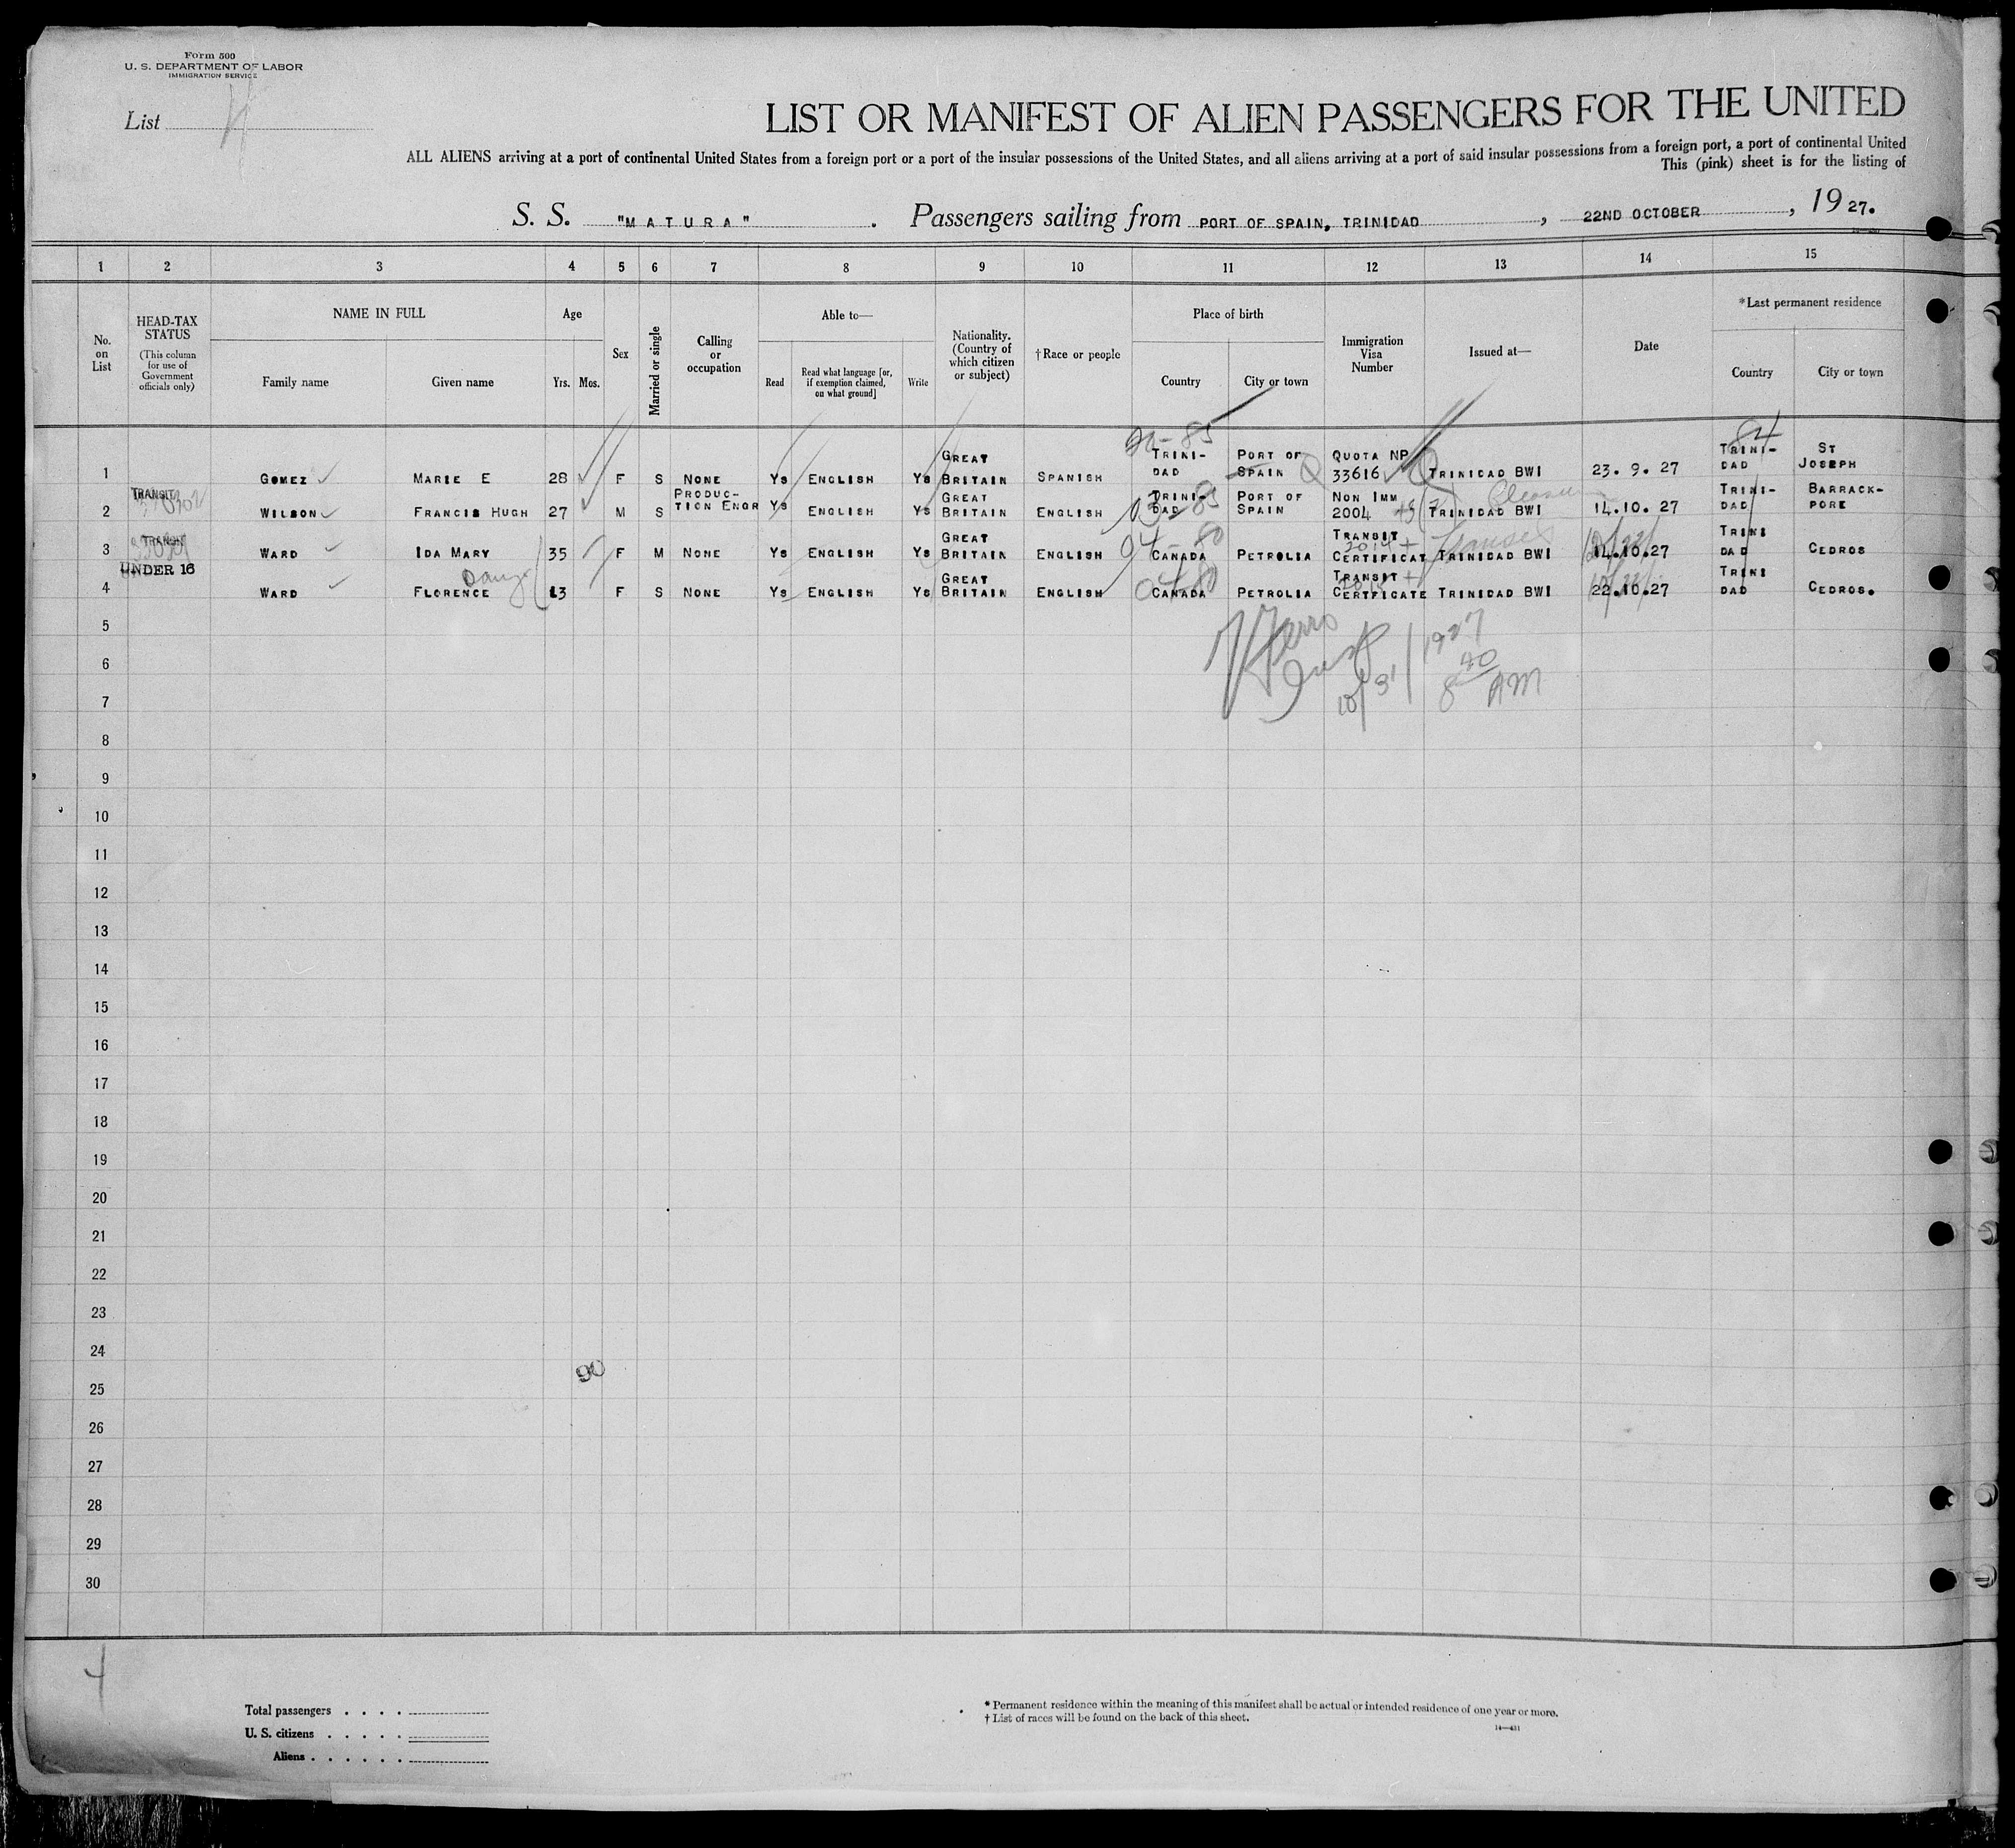 Form 500
U. S. DEPARTMENT OF LABOR
IMMIGRATION SERVICE
List 4
LIST OR MANIFEST OF ALIEN PASSENGERS FOR THE UNITED
ALL ALIENS arriving at a port of continental United States from a foreign port or a port of the insular possessions of the United States, and all aliens arriving at a port of said insular possessions from a foreign port, a port of continental United
This (pink) sheet is for the listing of
S. S. "MATURA". Passengers sailing from PORT OF SPAIN, TRINIDAD, 22ND OCTOBER, 1927.
1 2 3 4 5 6 7 8 9 10 11 12 13 14 15
No. on List
HEAD-TAX STATUS
(This column for use of Government officials only)
NAME IN FULL
Family name Given name
Age
Yrs. Mos.
Sex
Married or single
Calling or occupation
Able to—
Read Read what language [or, if exemption claimed, on what ground] Write
Nationality. (Country of which citizen or subject)
†Race or people
Place of birth
Country City or town
Immigration Visa Number
Issued at—
Date
*Last permanent residence
Country City or town
20-85 84
1 GOMEZ MARIE E 28 F S NONE Ys ENGLISH Ys GREAT BRITAIN SPANISH TRINIDAD PORT OF SPAIN Q QUOTA NP 33616 Q TRINIDAD BWI 23. 9. 27 TRINI-DAD ST JOSEPH
2 TRANSIT WILSON FRANCIS HUGH 27 M S PRODUC-TION ENGR Ys ENGLISH Ys GREAT BRITAIN ENGLISH TRINI-DAD PORT OF SPAIN NON IMM 2004 TRINIDAD BWI 14.10. 27 TRINI-DAD BARRACK-PORE
3 TRANSIT WARD IDA MARY 35 F M NONE Ys ENGLISH Ys GREAT BRITAIN ENGLISH CANADA PETROLIA TRANSIT CERTIFICAT TRINIDAD BWI 14.10.27 TRINI DAD CEDROS
4 UNDER 16 WARD FLORENCE 13 F S NONE Ys ENGLISH Ys GREAT BRITAIN ENGLISH CANADA PETROLIA TRANSIT CERTFICATE TRINIDAD BWI 22.10.27 TRINI DAD CEDROS.
5
6
10/31/1927
8 40 AM
7
8
9
10
11
12
13
14
15
16
17
18
19
20
21
22
23
24
90
25
26
27
28
29
30
4
Total passengers . . . .
U. S. citizens . . . . .
Aliens . . . . . .
* Permanent residence within the meaning of this manifest shall be actual or intended residence of one year or more.
† List of races will be found on the back of this sheet.
14—431